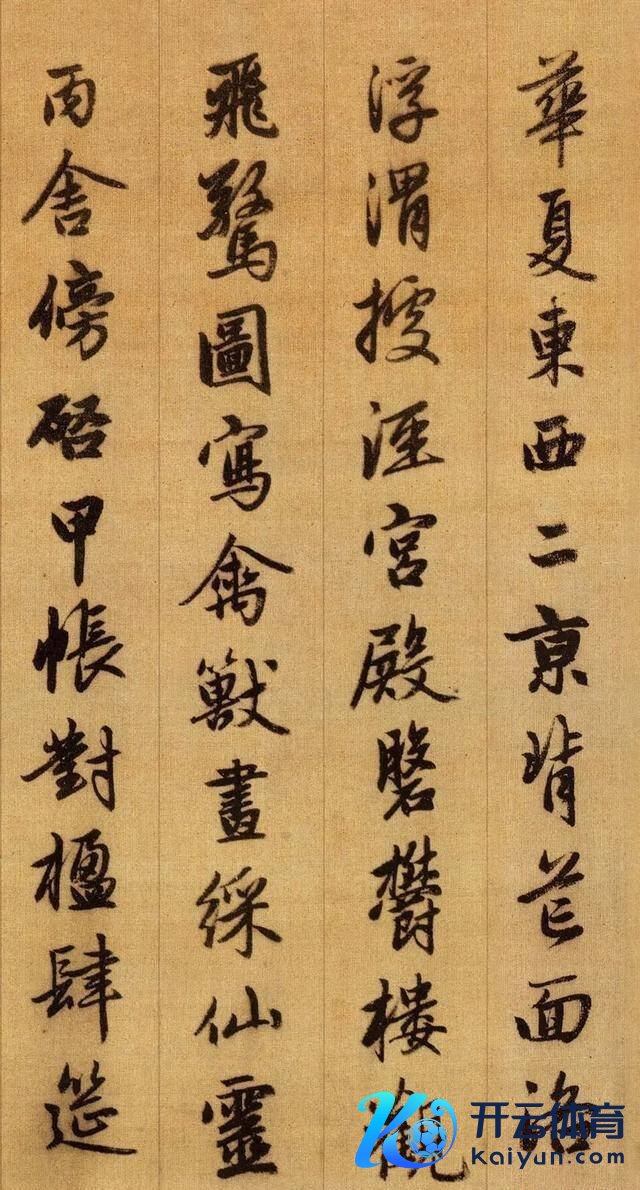 華夏東西二京背芒面洛
浮渭據涇宮殿磐欝樓觀
飛驚圖寫禽獸畫綵仙靈
丙舍傍啓甲帳對楹肆筵
开云体育
kaiyun.com